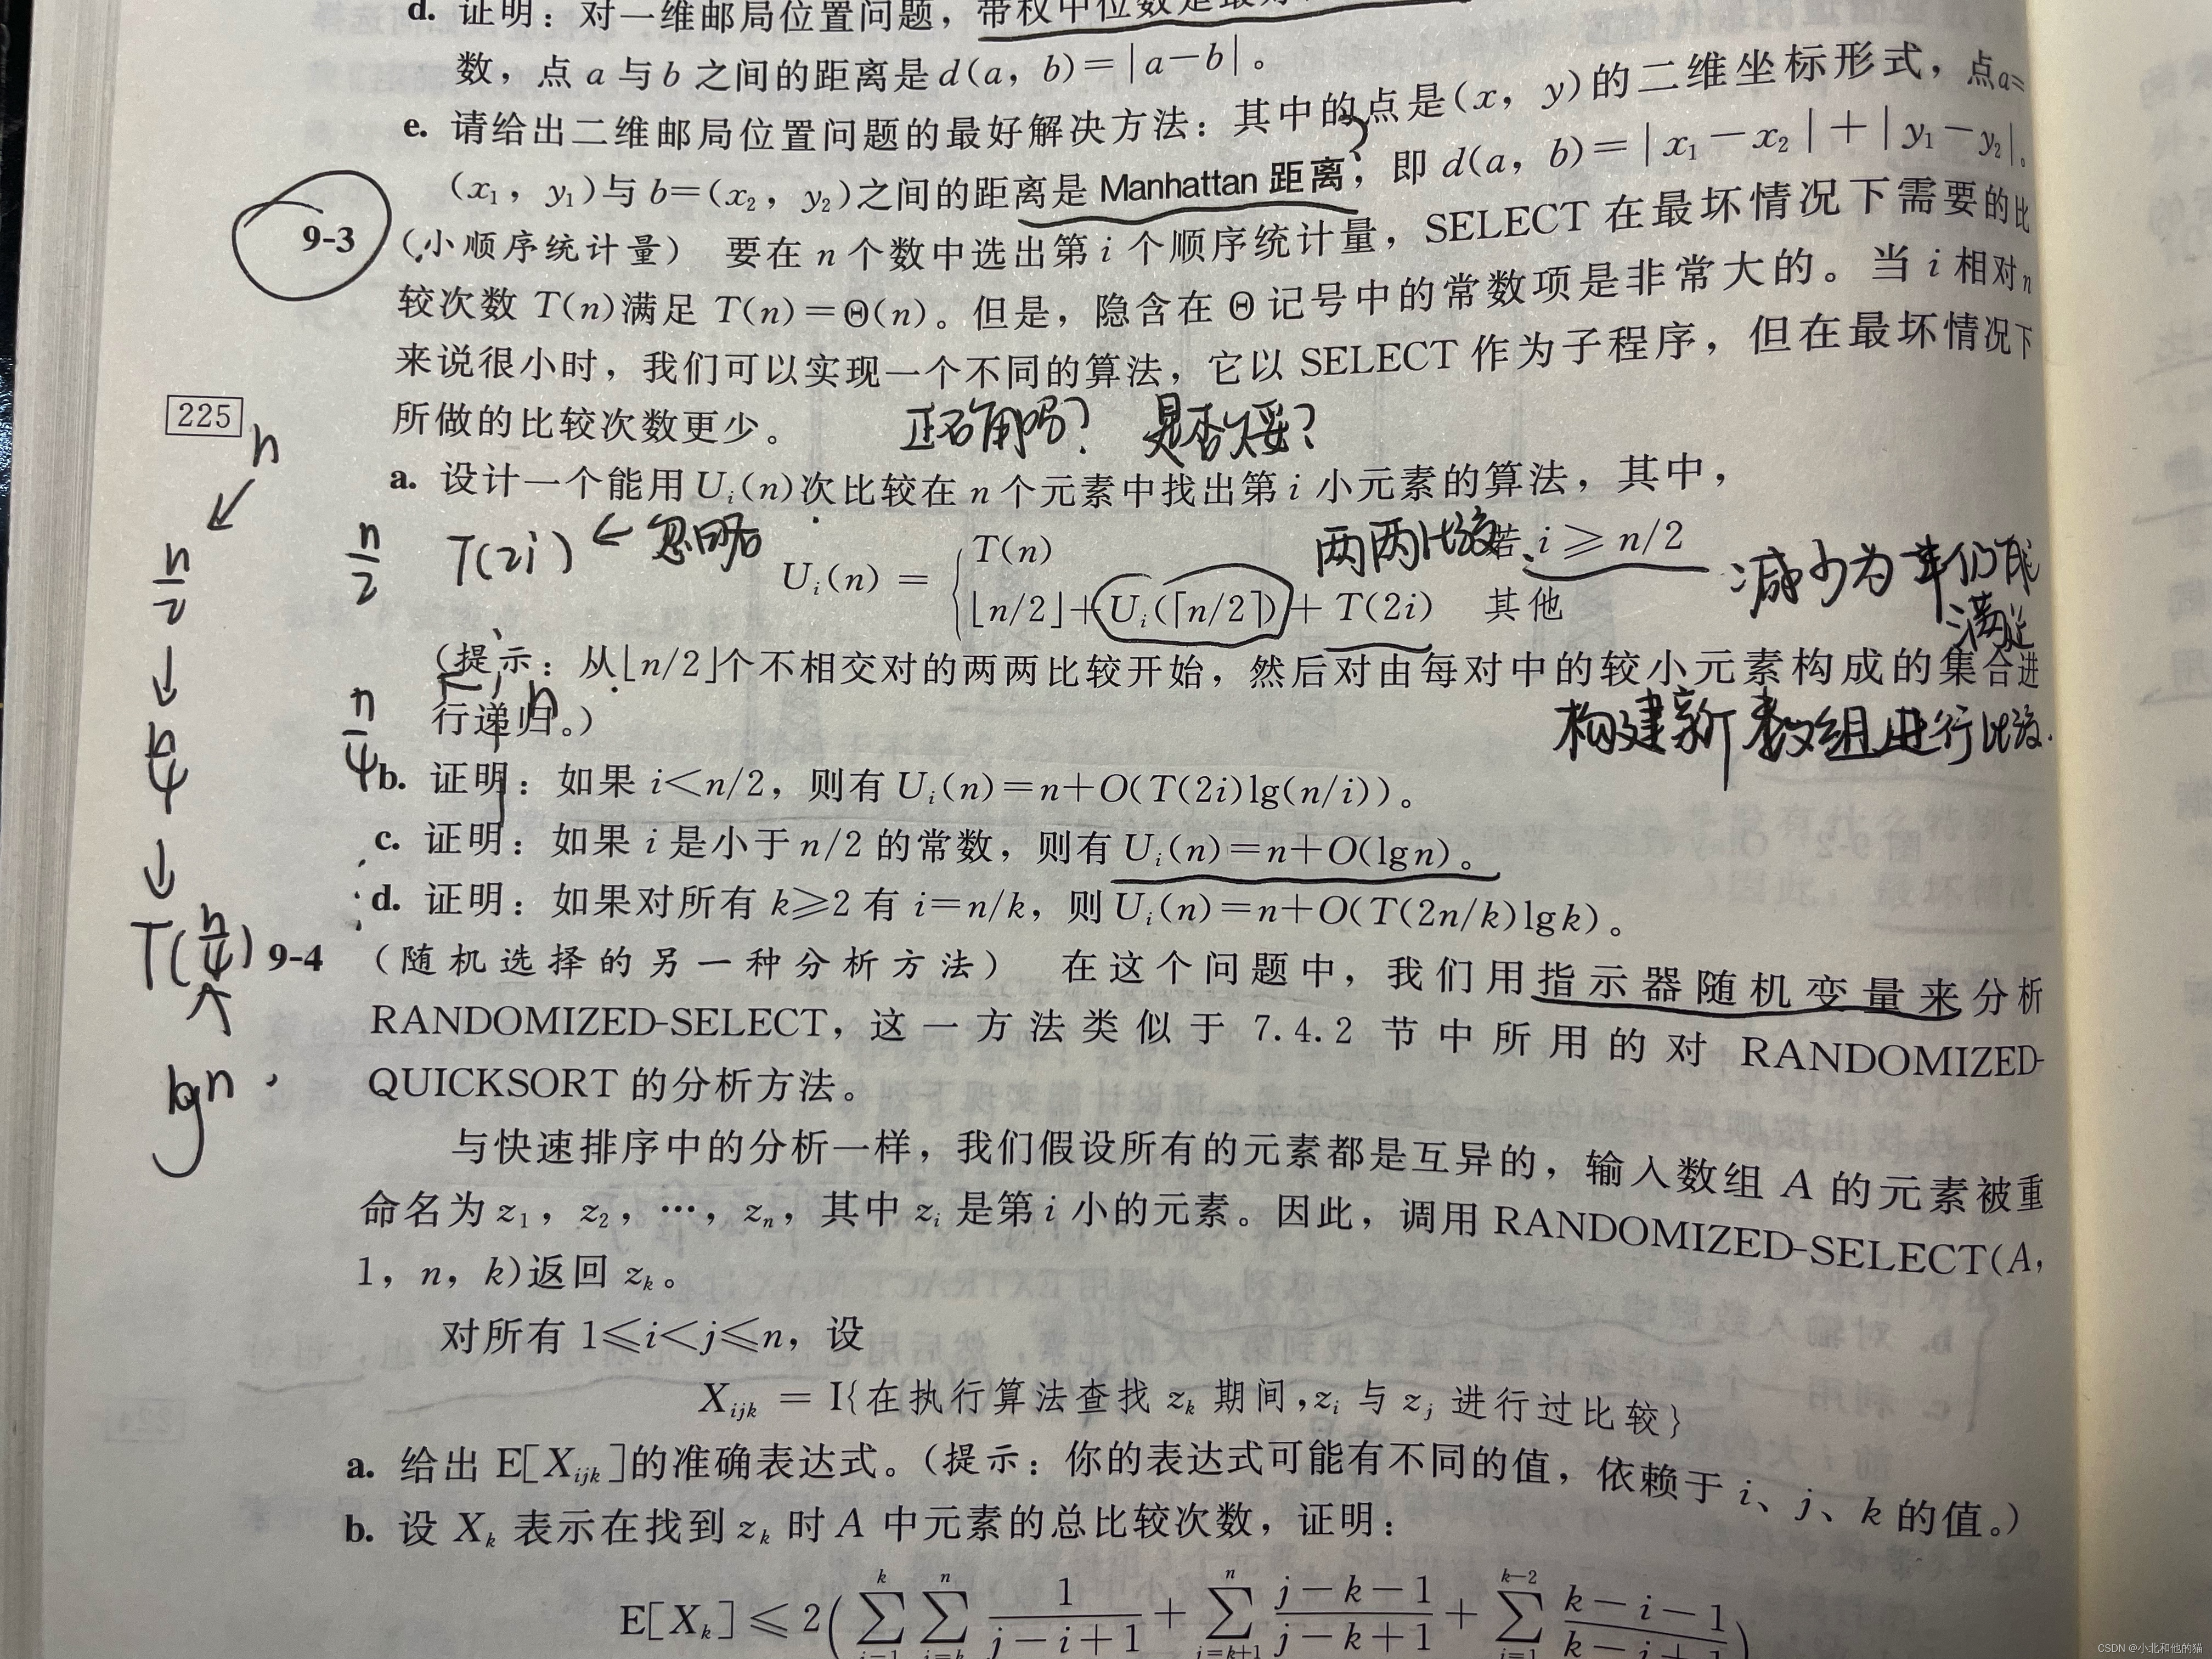 d. 证明：对一维邮局位置问题，带权中位数是最好
数，点 a 与 b 之间的距离是 d(a, b)=|a-b|。
e. 请给出二维邮局位置问题的最好解决方法：其中的点是(x, y)的二维坐标形式，点a=
(x₁, y₁)与 b=(x₂, y₂)之间的距离是 Manhattan 距离，即 d(a, b)=|x₁-x₂|+|y₁-y₂|。
9-3 (小顺序统计量) 要在 n 个数中选出第 i 个顺序统计量，SELECT 在最坏情况下需要的比
较次数 T(n)满足 T(n)=Θ(n)。但是，隐含在 Θ 记号中的常数项是非常大的。当 i 相对 n
来说很小时，我们可以实现一个不同的算法，它以 SELECT 作为子程序，但在最坏情况下
所做的比较次数更少。
正确吗？ 是否欠妥？
225
a. 设计一个能用 Uᵢ(n)次比较在 n 个元素中找出第 i 小元素的算法，其中，
T(2i) ← 忽略
两两比较
Uᵢ(n) = { T(n) 若 i ≥ n/2
⌊n/2⌋+Uᵢ(⌈n/2⌉)+T(2i) 其他
减少为 半仍能
满足
(提示：从⌊n/2⌋个不相交对的两两比较开始，然后对由每对中的较小元素构成的集合进
行递归。)
构建新数组进行比较.
b. 证明：如果 i<n/2，则有 Uᵢ(n)=n+O(T(2i)lg(n/i))。
c. 证明：如果 i 是小于 n/2 的常数，则有 Uᵢ(n)=n+O(lgn)。
d. 证明：如果对所有 k≥2 有 i=n/k，则 Uᵢ(n)=n+O(T(2n/k)lgk)。
n
↙
n/2
↓
n/4
↓
T(n/4)
↑
lgn
n/2
n/4
9-4 (随机选择的另一种分析方法) 在这个问题中，我们用指示器随机变量来分析
RANDOMIZED-SELECT，这一方法类似于 7.4.2 节中所用的对 RANDOMIZED-
QUICKSORT 的分析方法。
与快速排序中的分析一样，我们假设所有的元素都是互异的，输入数组 A 的元素被重
命名为 z₁，z₂，…，zₙ，其中 zᵢ 是第 i 小的元素。因此，调用 RANDOMIZED-SELECT(A,
1, n, k)返回 zₖ。
对所有 1≤i<j≤n，设
Xᵢⱼₖ = I{在执行算法查找 zₖ 期间,zᵢ 与 zⱼ 进行过比较}
a. 给出 E[Xᵢⱼₖ]的准确表达式。(提示：你的表达式可能有不同的值，依赖于 i、j、k 的值。)
b. 设 Xₖ 表示在找到 zₖ 时 A 中元素的总比较次数，证明：
E[Xₖ] ≤ 2(∑ᵢ₌₁ᵏ ∑ⱼ₌ₖⁿ 1/(j-i+1) + ∑ⱼ₌ₖ₊₁ⁿ (j-k-1)/(j-k+1) + ∑ᵢ₌₁ᵏ⁻² (k-i-1)/(k-i+1))
CSDN @小北和他的猫